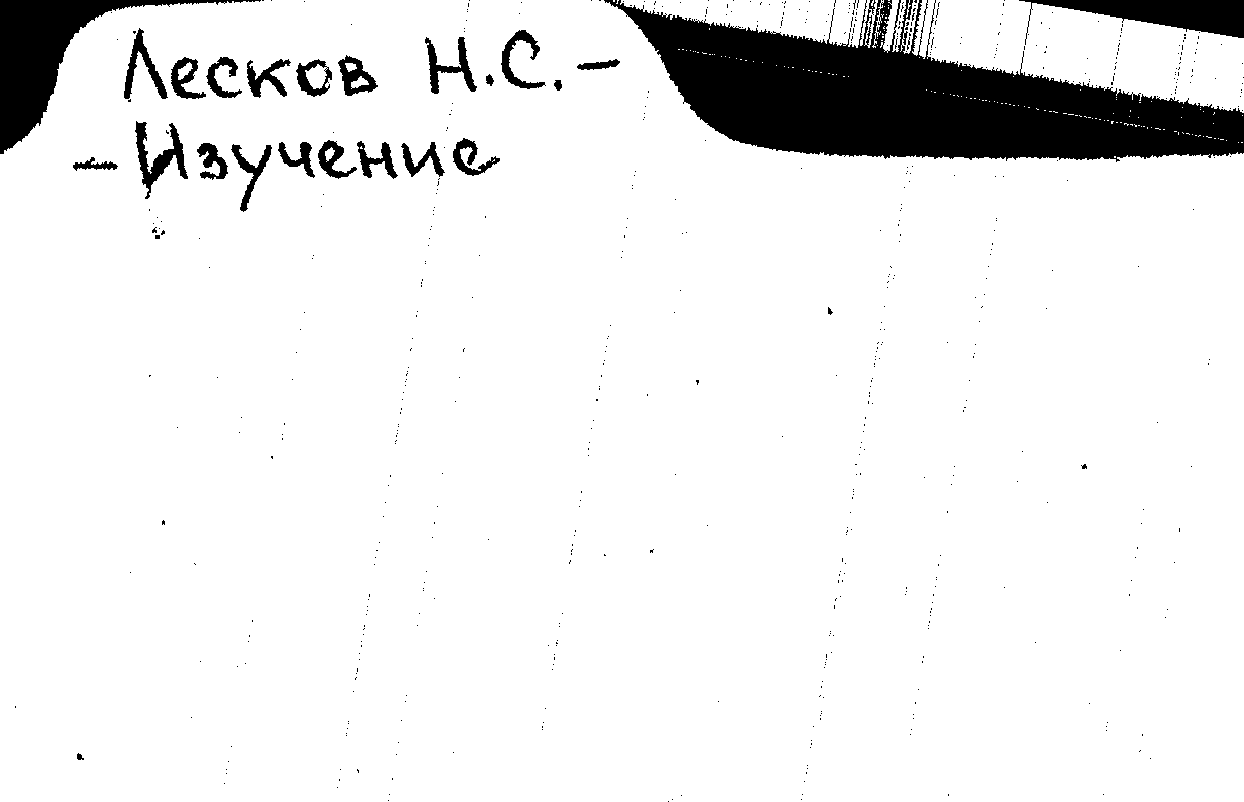 Лесков Н.С. –
– Изучение